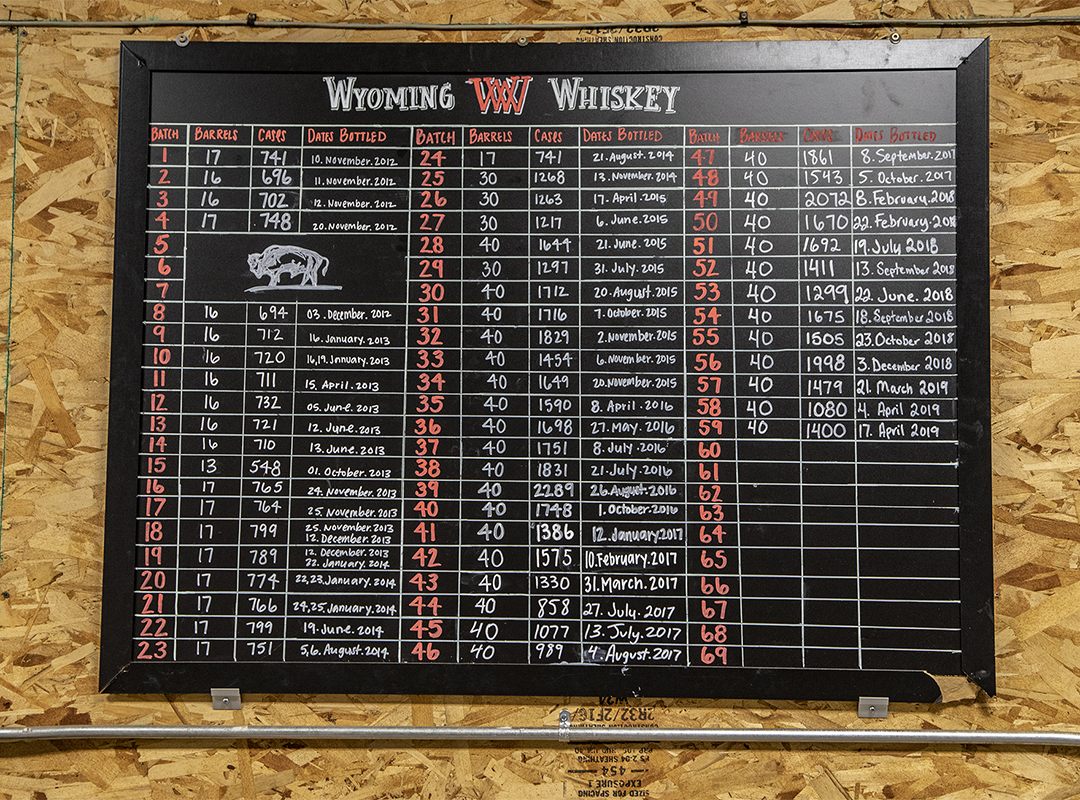 WYOMING WW WHISKEY
BATCH BARRELS CASES DATES BOTTLED BATCH BARRELS CASES DATES BOTTLED BATCH BARRELS CASES DATES BOTTLED
1 17 741 10.November.2012 24 17 741 21.August.2014 47 40 1861 8.September.2017
2 16 696 11.November.2012 25 30 1268 13.November.2014 48 40 1543 5.October.2017
3 16 702 12.November.2012 26 30 1263 17.April.2015 49 40 2072 8.February.2018
4 17 748 20.November.2012 27 30 1217 6.June.2015 50 40 1670 22.February.2018
5 28 40 1644 21.June.2015 51 40 1692 19.July 2018
6 29 30 1297 31.July.2015 52 40 1411 13.September 2018
7 30 40 1712 20.August.2015 53 40 1299 22.June.2018
8 16 694 03.December.2012 31 40 1716 7.October.2015 54 40 1675 18.September 2018
9 16 712 16.January.2013 32 40 1829 2.November.2015 55 40 1505 23.October 2018
10 16 720 16,19.January.2013 33 40 1454 6.November.2015 56 40 1998 3.December 2018
11 16 711 15.April.2013 34 40 1649 20.November.2015 57 40 1479 21.March 2019
12 16 732 05.June.2013 35 40 1590 8.April.2016 58 40 1080 4.April 2019
13 16 721 12.June.2013 36 40 1698 27.May.2016 59 40 1400 17.April 2019
14 16 710 13.June.2013 37 40 1751 8.July.2016 60
15 13 548 01.October.2013 38 40 1831 21.July.2016 61
16 17 765 24.November.2013 39 40 2289 26.August.2016 62
17 17 764 25.November.2013 40 40 1748 1.October.2016 63
18 17 799 25.November.2013 12.December.2013 41 40 1386 12.January.2017 64
19 17 789 12.December.2013 22.January.2014 42 40 1575 10.February.2017 65
20 17 774 22,23.January.2014 43 40 1330 31.March.2017 66
21 17 766 24,25.January.2014 44 40 858 27.July.2017 67
22 17 799 19.June.2014 45 40 1077 13.July.2017 68
23 17 751 5,6.August.2014 46 40 989 4.August.2017 69
2R32/2F16/
CONSTRUCTION SHEATHING
PS 2-04 SHEATHING
454
EXPOSURE 1
SIZED FOR SPACING